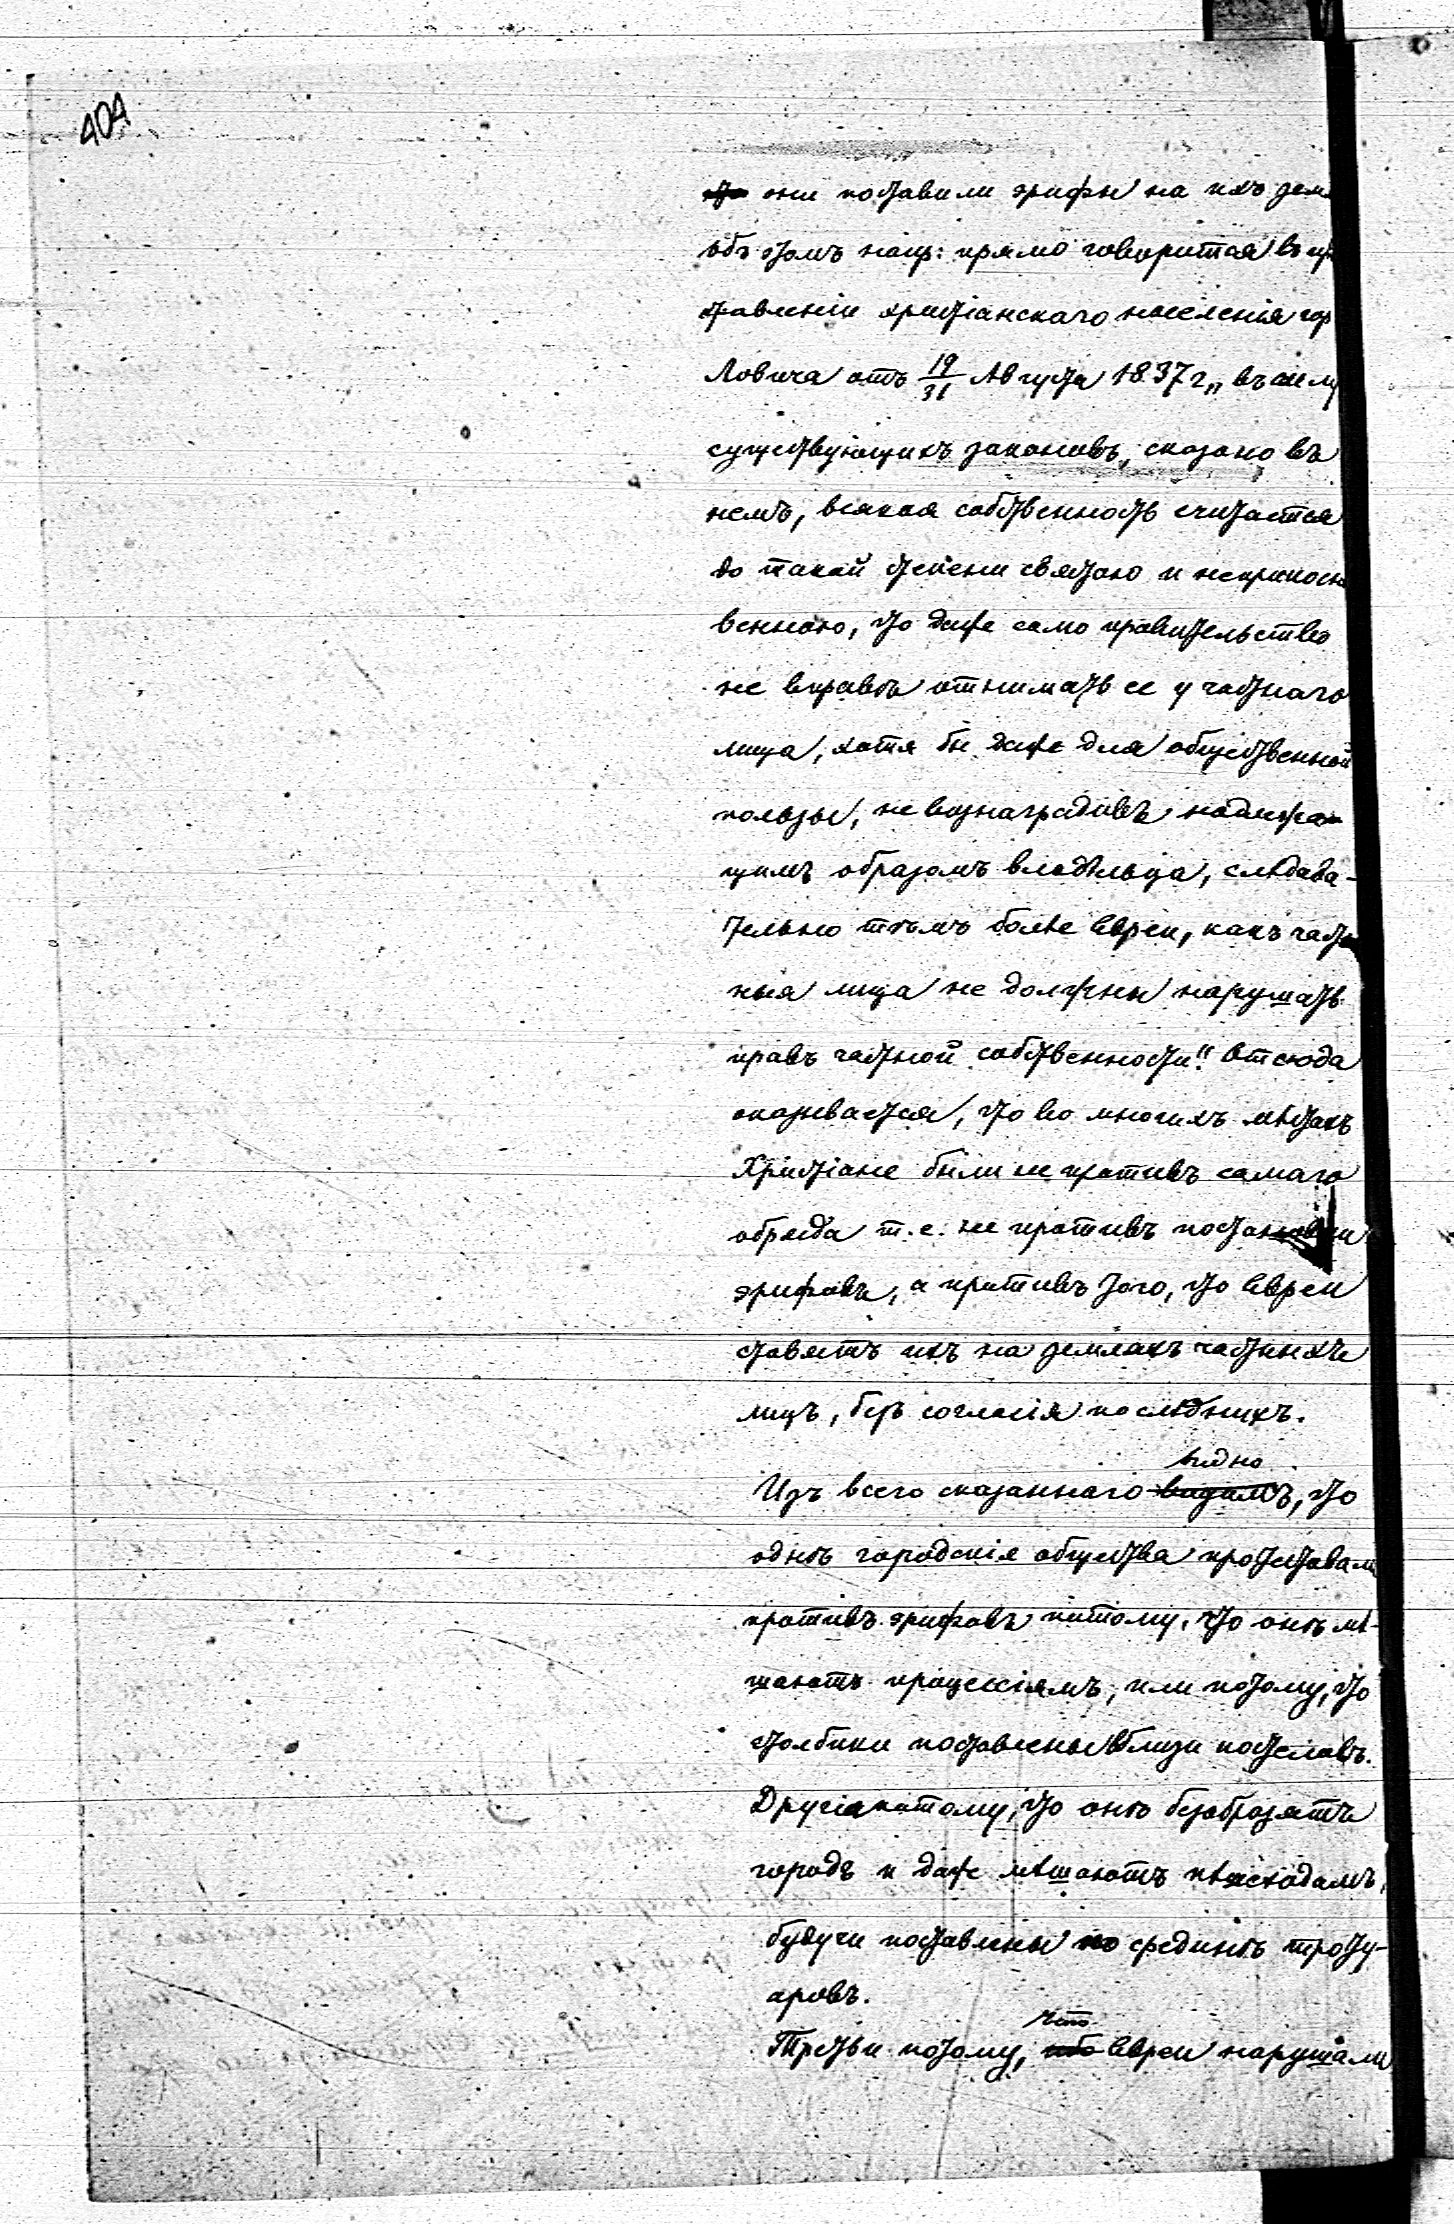 404
они поставили эрифы на ихъ земл
объ этомъ напр: прямо говорится въ пр
ставленіи христіанскаго населенія гор
Ловича отъ 19/31 Августа 1837 г „въ силу
существующихъ законовъ, сказано въ
немъ, всякая собственность считается
до такой степени святою и неприкосн
венною, что даже само правительство
не вправѣ отнимать ее у частнаго
лица, хотя бы даже для общественной
пользы, не вознаградивъ надлежа
щимъ образомъ владѣльца, слѣдова-
тельно тѣмъ болѣе евреи, какъ част
ныя лица не должны нарушать
правъ частной собственности". Отсюда
оказывается, что во многихъ мѣстахъ
Христіане были не противъ самаго
обряда т.е. не противъ постановки
эрифовъ, а противъ того, что евреи
ставятъ ихъ на земляхъ частныхъ
лицъ, безъ согласія послѣднихъ.
видно
Изъ всего сказаннаго видимъ, что
однѣ городскія общества протестовали
противъ эрифовъ потому, что онѣ мѣ-
шаютъ процессіямъ, или потому, что
столбики поставлены вблизи костеловъ.
Другія потому, что онѣ безобразятъ
городъ и даже мѣшаютъ пѣшеходамъ,
будучи поставлены по срединѣ троту-
аровъ.
что
Третьи потому, ибо евреи нарушали